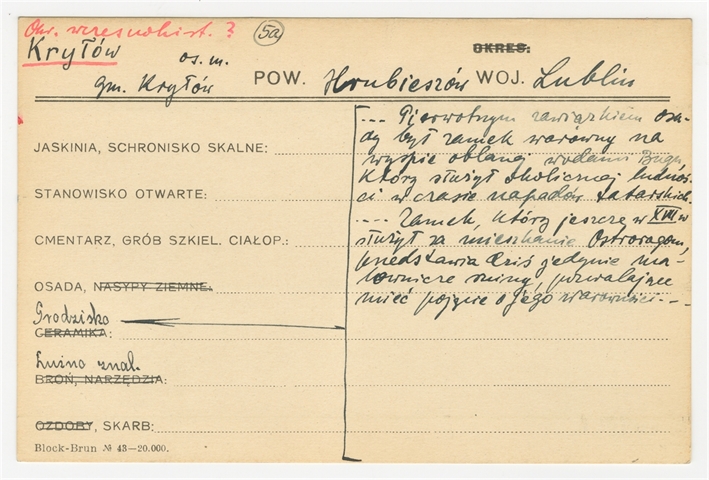 Okr. wczesnohist. ?
5a
OKRES:
Kryłów os. m.
gm. Kryłów POW. Hrubieszów WOJ. Lublin
--- Pierwotnym zawiązkiem osa-
dy był zamek warowny na
JASKINIA, SCHRONISKO SKALNE:
wyspie oblanej wodami Bugu
który służył okolicznej ludnoś-
STANOWISKO OTWARTE:
ci w czasie napadów tatarskich.
---- Zamek, który jeszcze w XVIII w
CMENTARZ, GRÓB SZKIEL. CIAŁOP.:
służył za mieszkanie Ostrorogom,
przedstawia dziś jedynie ma-
OSADA, NASYPY ZIEMNE.
lownicze ruiny, pozwalające
mieć pojęcie o jego warowności - -
Grodzisko
CERAMIKA:
Luźno znal.
BROŃ, NARZĘDZIA:
OZDOBY, SKARB:
Block-Brun № 43—20.000.